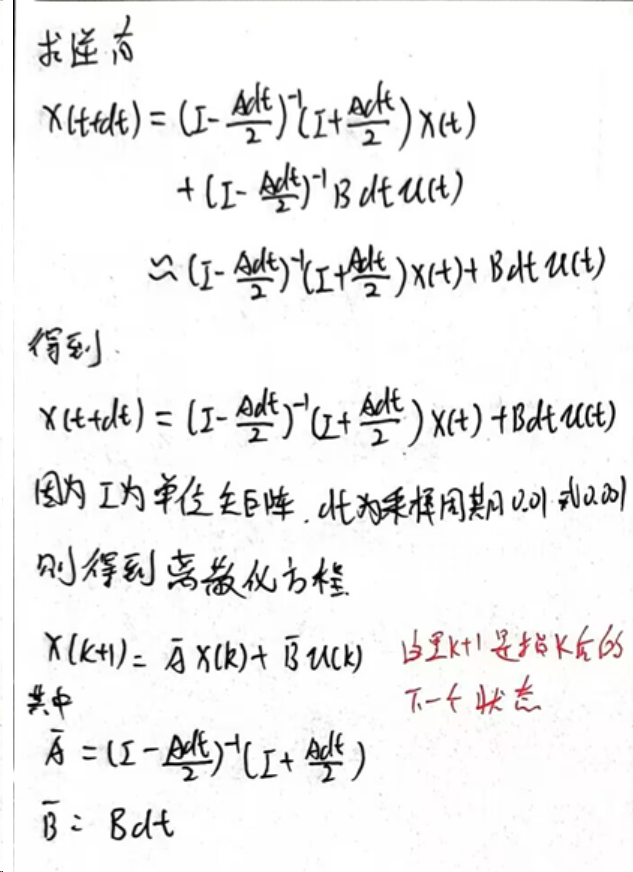 求逆有
X(t+dt) = (I - Adt/2)⁻¹(I + Adt/2) X(t)
+ (I - Adt/2)⁻¹ B dt u(t)
≈ (I - Adt/2)⁻¹(I + Adt/2) X(t) + B dt u(t)
得到
X(t+dt) = (I - Adt/2)⁻¹(I + Adt/2) X(t) + B dt u(t)
因为 I 为单位矩阵. dt为采样周期0.01 或0.001
则得到离散化方程
X(k+1) = A̅ X(k) + B̅ u(k) 这里k+1是指k后的
下一个状态
其中
A̅ = (I - Adt/2)⁻¹(I + Adt/2)
B̅ = Bdt